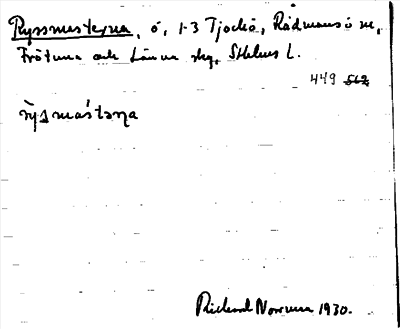 Ryssmasterna, ö, 1-3 Tjockö, Rådmansö sn,
Frötuna och Länna skg, Sthlms L.
449 562
rysmástəṇa
Rickard Norrman 1930.